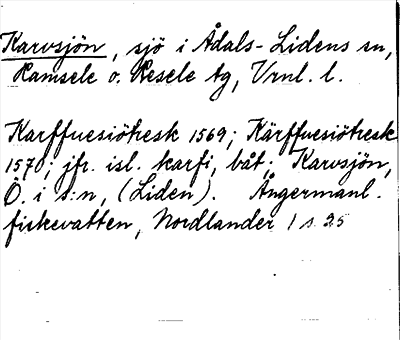 Karvsjön, sjö i Ådals-Lidens sn,
Ramsele o. Resele tg, Vrnl. l.
Karffuesiötresk 1569; Kärffuesiötresk
1570; jfr. isl. karfi, båt; Karvsjön,
Ö. i s:n, (Liden). Ångermanl.
fiskevatten, Nordlander 1 s. 25